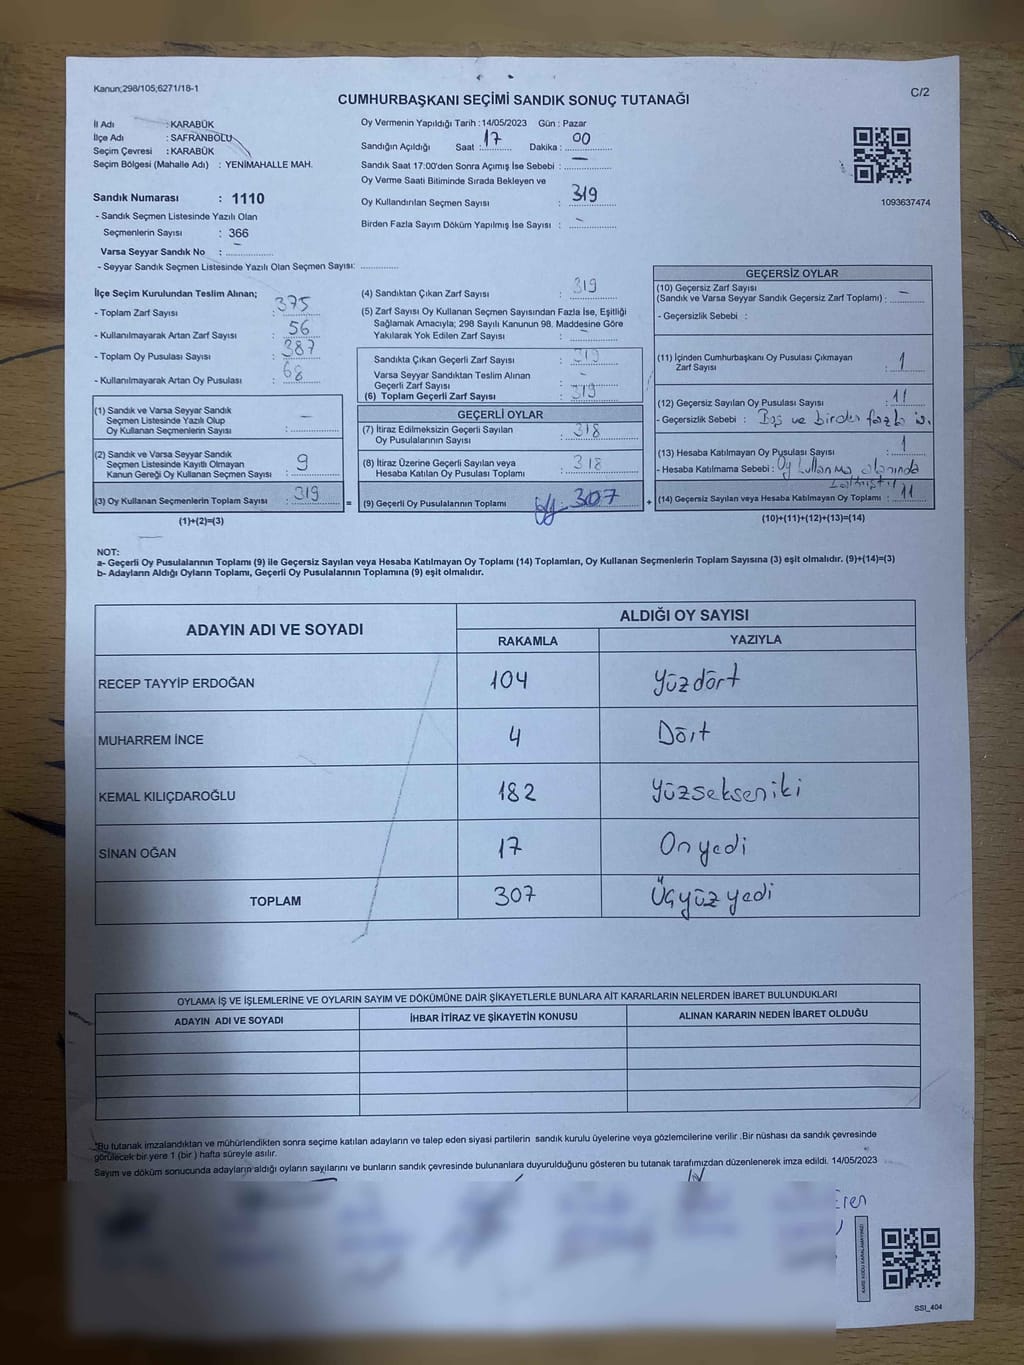 Kanun;298/105;6271/18-1
C/2
CUMHURBAŞKANI SEÇİMİ SANDIK SONUÇ TUTANAĞI
İl Adı : KARABÜK
İlçe Adı : SAFRANBOLU
Seçim Çevresi : KARABÜK
Seçim Bölgesi (Mahalle Adı) : YENİMAHALLE MAH.
Sandık Numarası : 1110
- Sandık Seçmen Listesinde Yazılı Olan
Seçmenlerin Sayısı : 366
Varsa Seyyar Sandık No : –
- Seyyar Sandık Seçmen Listesinde Yazılı Olan Seçmen Sayısı: ..............
Oy Vermenin Yapıldığı Tarih : 14/05/2023 Gün : Pazar
Sandığın Açıldığı Saat : 17 Dakika : 00
Sandık Saat 17:00'den Sonra Açımış İse Sebebi : –
Oy Verme Saati Bitiminde Sırada Bekleyen ve
Oy Kullandırılan Seçmen Sayısı : 319
Birden Fazla Sayım Döküm Yapılmış İse Sayısı : –
1093637474
İlçe Seçim Kurulundan Teslim Alınan;
- Toplam Zarf Sayısı : 375
- Kullanılmayarak Artan Zarf Sayısı : 56
- Toplam Oy Pusulası Sayısı : 387
- Kullanılmayarak Artan Oy Pusulası : 68
(1) Sandık ve Varsa Seyyar Sandık
Seçmen Listesinde Yazılı Olup
Oy Kullanan Seçmenlerin Sayısı : –
(2) Sandık ve Varsa Seyyar Sandık
Seçmen Listesinde Kayıtlı Olmayan
Kanun Gereği Oy Kullanan Seçmen Sayısı : 9
(3) Oy Kullanan Seçmenlerin Toplam Sayısı : 319 =
(1)+(2)=(3)
(4) Sandıktan Çıkan Zarf Sayısı : 319
(5) Zarf Sayısı Oy Kullanan Seçmen Sayısından Fazla İse, Eşitliği
Sağlamak Amacıyla; 298 Sayılı Kanunun 98. Maddesine Göre
Yakılarak Yok Edilen Zarf Sayısı : –
Sandıkta Çıkan Geçerli Zarf Sayısı : 319
Varsa Seyyar Sandıktan Teslim Alınan
Geçerli Zarf Sayısı : –
(6) Toplam Geçerli Zarf Sayısı : 319
GEÇERLİ OYLAR
(7) İtiraz Edilmeksizin Geçerli Sayılan
Oy Pusulalarının Sayısı : 318
(8) İtiraz Üzerine Geçerli Sayılan veya
Hesaba Katılan Oy Pusulası Toplamı : 318
(9) Geçerli Oy Pusulalarının Toplamı 307 +
GEÇERSİZ OYLAR
(10) Geçersiz Zarf Sayısı
(Sandık ve Varsa Seyyar Sandık Geçersiz Zarf Toplamı) : –
- Geçersizlik Sebebi :
(11) İçinden Cumhurbaşkanı Oy Pusulası Çıkmayan
Zarf Sayısı : 1
(12) Geçersiz Sayılan Oy Pusulası Sayısı : 11
- Geçersizlik Sebebi : Boş ve birden fazla
(13) Hesaba Katılmayan Oy Pusulası Sayısı : 1
- Hesaba Katılmama Sebebi : Oy kullanma alanında
(14) Geçersiz Sayılan veya Hesaba Katılmayan Oy Toplamı : 11
(10)+(11)+(12)+(13)=(14)
NOT:
a- Geçerli Oy Pusulalarının Toplamı (9) ile Geçersiz Sayılan ve Hesaba Katılmayan Oy Toplamı (14) Toplamları, Oy Kullanan Seçmenlerin Toplam Sayısına (3) eşit olmalıdır. (9)+(14)=(3)
b- Adayların Aldığı Oyların Toplamı, Geçerli Oy Pusulalarının Toplamına (9) eşit olmalıdır.
ADAYIN ADI VE SOYADI ALDIĞI OY SAYISI
RAKAMLA YAZIYLA
RECEP TAYYİP ERDOĞAN 104 Yüzdört
MUHARREM İNCE 4 Dört
KEMAL KILIÇDAROĞLU 182 Yüzsekseniki
SİNAN OĞAN 17 Onyedi
TOPLAM 307 Üçyüz yedi
OYLAMA İŞ VE İŞLEMLERİNE VE OYLARIN SAYIM VE DÖKÜMÜNE DAİR ŞİKAYETLERLE BUNLARA AİT KARARLARIN NELERDEN İBARET BULUNDUKLARI
ADAYIN ADI VE SOYADI İHBAR İTİRAZ VE ŞİKAYETİN KONUSU ALINAN KARARIN NEDEN İBARET OLDUĞU
*Bu tutanak imzalandıktan ve mühürlendikten sonra seçime katılan adayların ve talep eden siyasi partilerin sandık kurulu üyelerine veya gözlemcilerine verilir .Bir nüshası da sandık çevresinde
görülecek bir yere 1 (bir ) hafta süreyle asılır.
Sayım ve döküm sonucunda adayların aldığı oyların sayılarını ve bunların sandık çevresinde bulunanlara duyurulduğunu gösteren bu tutanak tarafımızdan düzenlenerek imza edildi. 14/05/2023
Eren
KARE KODU KARALAMAYINIZ!
SSI_404